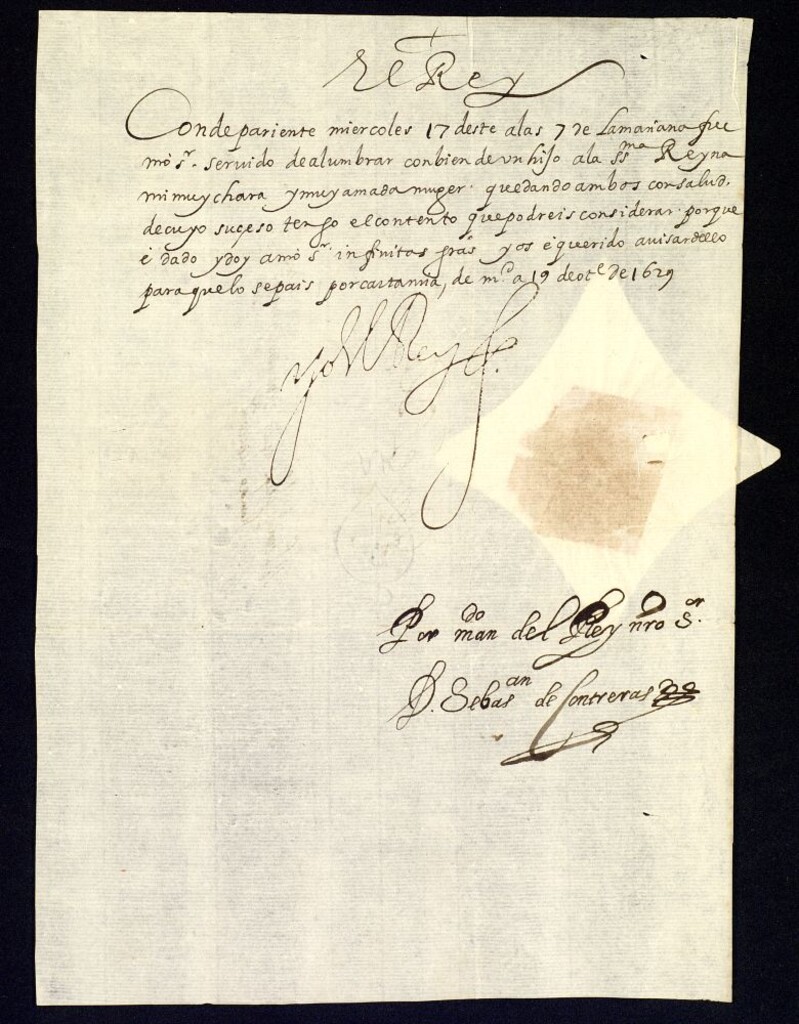 +
El Rey
Conde pariente miercoles 17 deste alas 7 de la mañana fue
nrō sr. servido de alumbrar con bien de vn hijo ala ssma Reyna
mi muy chara y muy amada muger. quedando ambos con salud.
de cuyo suçeso tengo el contento que podreis considerar. porque
é dado y doy a nrō sr. infinitas gras y os é querido auisar dello
para que lo sepais por carta mia, de md. a 19 de otre de 1629
yo el Rey
Por mando del Rey nro Sor.
D. Sebasan de Contreras